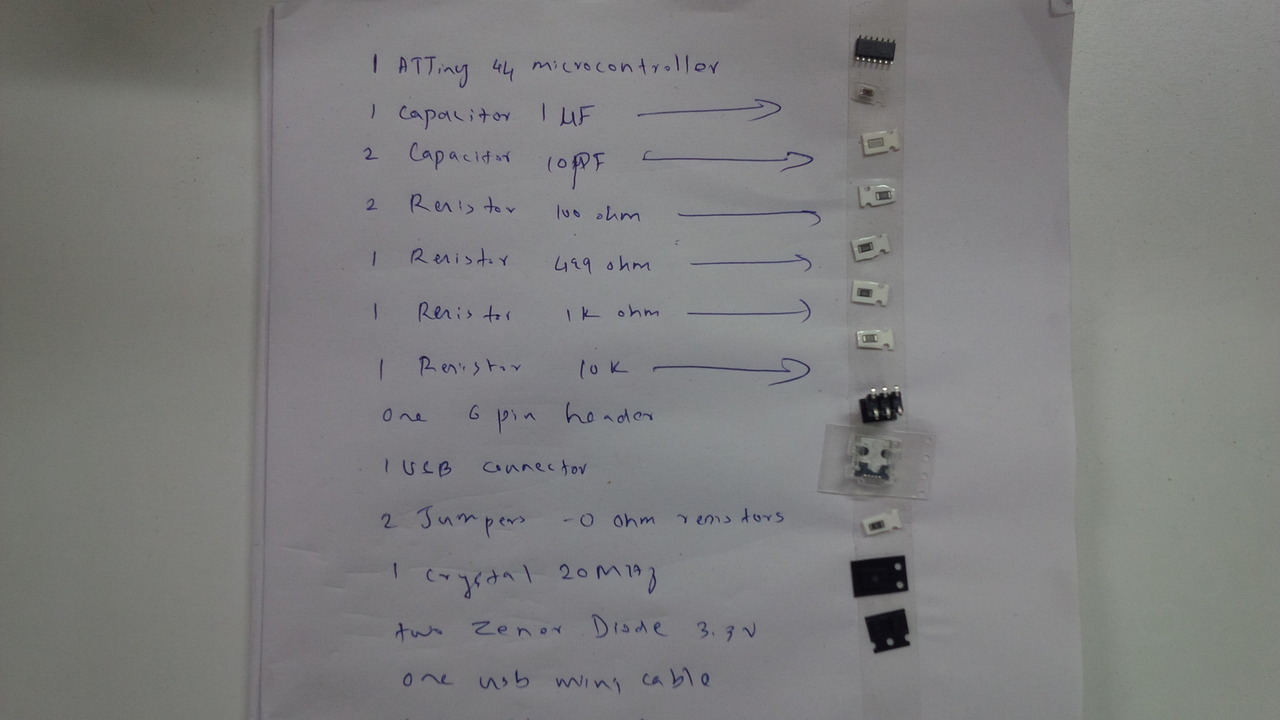 1 ATTiny 44 microcontroller
1 Capacitor 1 µF
2 Capacitor 10pF
2 Resistor 100 ohm
1 Resistor 499 ohm
1 Resistor 1K ohm
1 Resistor 10K
one 6 pin header
1 USB connector
2 Jumpers -0 ohm resistors
1 Crystal 20MHz
two Zenor Diode 3.3V
one usb cable